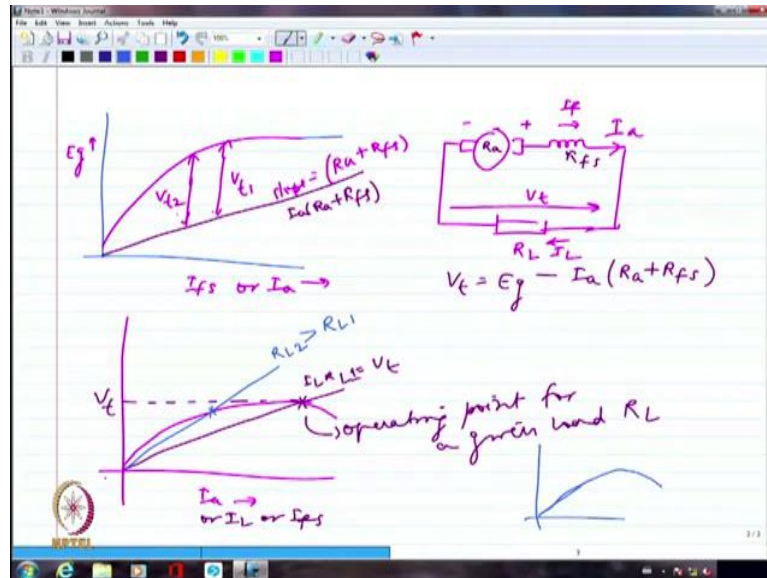 Note1 - Windows Journal
File Edit View Insert Actions Tools Help
100%
B I
Eg ↑
Vt2
Vt1
slope = (Ra + Rfs)
Ia(Ra + Rfs)
Ifs or Ia →
- + If →
Ra
Rfs
Ia
Vt
RL IL
Vt = Eg - Ia (Ra + Rfs)
RL2 > RL1
IL RL1 = Vt
Vt
operating point for
a given load RL
Ia →
or IL or Ifs
NPTEL
3/3